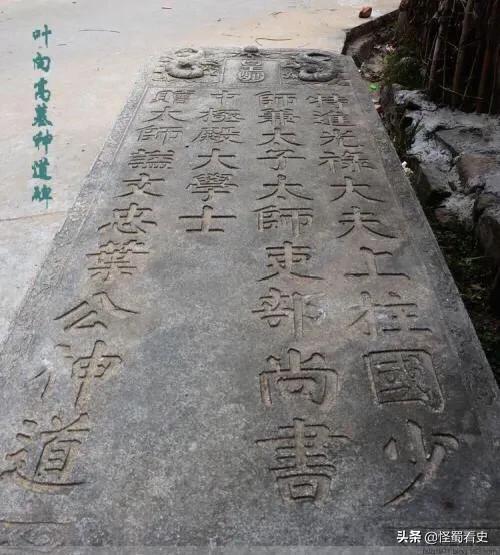 特進光祿大夫上柱國少
師兼太子太師吏部尚書
中極殿大學士
贈太師謚文忠葉公神道
叶向高墓神道碑
头条 @怪蜀看史